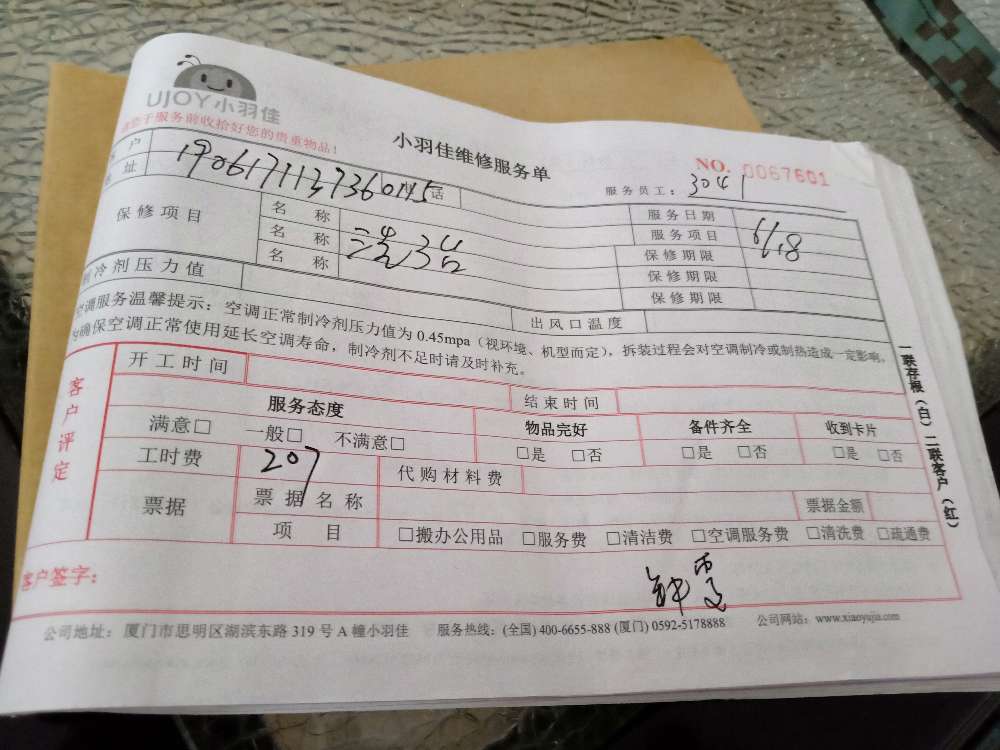 UJOY小羽佳
于服务前收拾好您的贵重物品!
小羽佳维修服务单
NO. 0067601
服务员工: 3041
户
址
话
保修项目
名 称
名 称
名 称
服务日期
6/18
服务项目
保修期限
保修期限
保修期限
制冷剂压力值
出风口温度
空调服务温馨提示: 空调正常制冷剂压力值为 0.45mpa (视环境、机型而定), 拆装过程会对空调制冷或制热造成一定影响,
为确保空调正常使用延长空调寿命, 制冷剂不足时请及时补充。
客户评定
开工时间
结束时间
服务态度
物品完好
备件齐全
收到卡片
满意□ 一般□ 不满意□
□是 □否
□是 □否
□是 □否
工时费
207
代购材料费
票据
票据名称
票据金额
项 目
□搬办公用品 □服务费 □清洁费 □空调服务费 □清洗费 □疏通费
客户签字:
公司地址: 厦门市思明区湖滨东路 319 号 A 幢小羽佳 服务热线: (全国) 400-6655-888 (厦门) 0592-5178888 公司网站: www.xiaoyujia.com
一联存根(白) 二联客户(红)